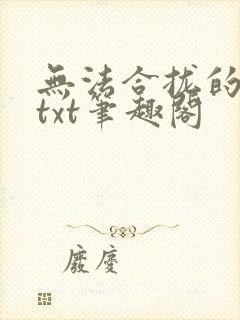 無法合拢的
txt筆趣閣
廢慶